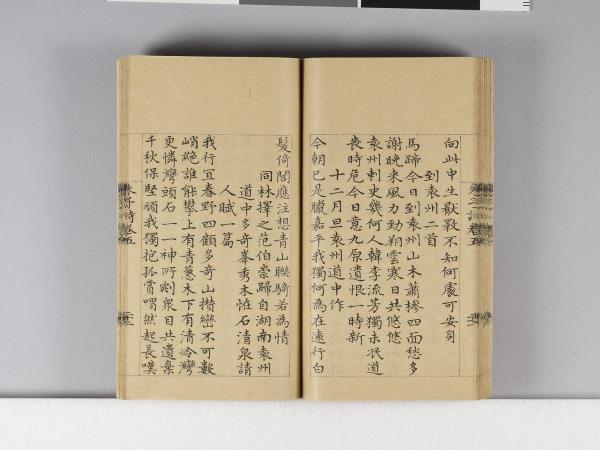 向此中生猒斁不知何處可安身
到袁州二首
馬蹄今日到袁州山木蕭槮四面愁多
謝晚來風力勁朔雲寒日共悠悠
袁州刺史幾何人韓李流芳獨未泯道
喪時危今日意九原遺恨一時新
十二月旦袁州道中作
今朝已是臘嘉平我獨何為在遠行白
髮倚閭應注想青山聯騎若為情
同林擇之范伯崇歸自湖南袁州
道中多奇峯秀木恠石清泉請
人賦一篇
我行宜春野四顧多奇山攅巒不可數
峭絶誰能攀上有青葱木下有清泠灣
更憐灣頭石一一神所剜衆目共遺棄
千秋保堅頑我獨抱孤賞喟然起長嘆